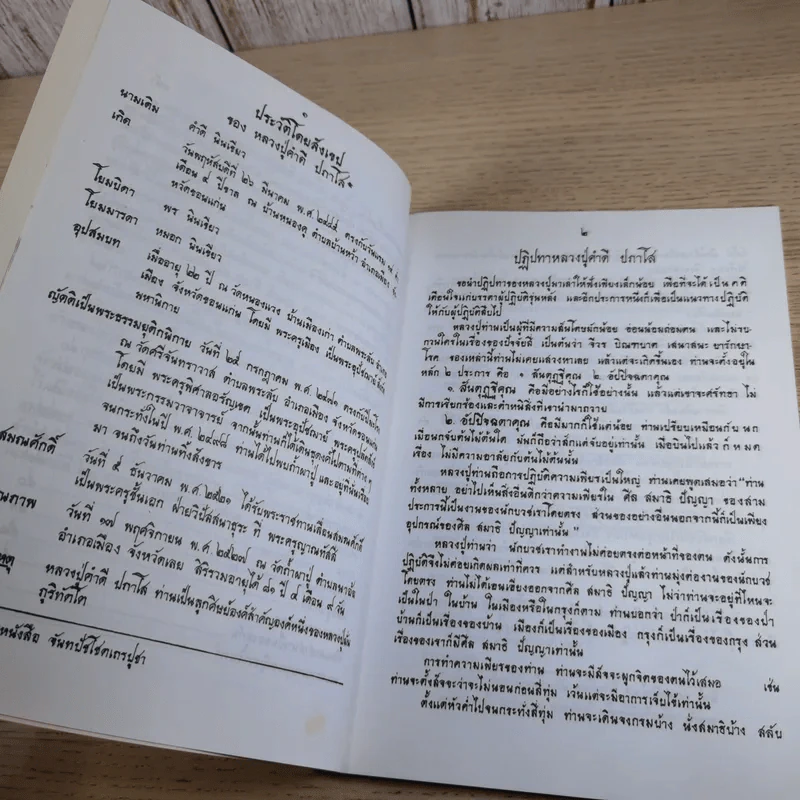 ประวัติโดยสังเขป
ของ หลวงปู่คำดี ปภาโส
นามเดิม คำดี นินเขียว
เกิด วันพฤหัสบดีที่ ๒๖ มีนาคม พ.ศ. ๒๔๔๔ ตรงกับวันแรม
เดือน ๔ ปีขาล ณ บ้านหนองคู ตำบลบ้านหว้า อำเภอเมือง
หวัดขอนแก่น
โยมบิดา พร นินเขียว
โยมมารดา หมอก นินเขียว
อุปสมบท เมื่ออายุ ๒๒ ปี ณ วัดหนองแวง บ้านเมืองเก่า ตำบลพระลับ อำเภอ
เมือง จังหวัดขอนแก่น โดยมี พระครูเมือง เป็นพระอุปัชฌาย์ สังกัด
มหานิกาย
ญัตติเป็นพระธรรมยุติกนิกาย วันที่ ๒๔ กรกฎาคม พ.ศ. ๒๔๗๑
ณ วัดศรีจันทราวาส ตำบลพระลับ อำเภอเมือง จังหวัดขอนแก่น
โดยมี พระครูพิศาลอรัญเขต เป็นพระอุปัชฌาย์
เป็นพระกรรมวาจาจารย์ จากนั้นท่านก็ได้เดินธุดงค์ไปตามที่ต่าง ๆ
จนกระทั่งในปี พ.ศ. ๒๔๙๘ ท่านได้ไปพบถ้ำผาปู่ และอยู่ที่นั่นเรื่อย
มา จนถึงวันท่านทิ้งสังขาร
สมณศักดิ์ วันที่ ๕ ธันวาคม พ.ศ. ๒๕๒๑ ได้รับพระราชทานเลื่อนสมณศักดิ์
เป็นพระครูชั้นเอก ฝ่ายวิปัสสนาธุระ ที่ พระครูญาณทัสสี
ณภาพ วันที่ ๑๗ พฤศจิกายน พ.ศ. ๒๕๒๗ ณ วัดถ้ำผาปู่ ตำบลนาอ้อ
อำเภอเมือง จังหวัดเลย สิริรวมอายุได้ ๘๑ ปี ๘ เดือน ๙ วัน
หตุ หลวงปู่คำดี ปภาโส ท่านเป็นลูกศิษย์องค์สำคัญองค์หนึ่งของหลวงปู่มั่น
ภูริทัตโต
หนังสือ จันทปัชโชตเถรปูชา
๒
ปฏิปทาหลวงปู่คำดี ปภาโส
ขอนำปฏิปทาของหลวงปู่มาเล่าให้ฟังเพียงเล็กน้อย เพื่อที่จะได้เป็นคติ
เตือนใจแก่บรรดาผู้ปฏิบัติรุ่นหลัง และอีกประการหนึ่งก็เพื่อเป็นแนวทางปฏิบัติ
ให้กับผู้ปฏิบัติสืบไป
หลวงปู่ท่านเป็นผู้ที่มีความสันโดษมักน้อย อ่อนน้อมถ่อมตน และไม่รบ-
กวนใครในเรื่องของปัจจัยสี่ เป็นต้นว่า จีวร บิณฑบาต เสนาสนะ ยารักษา-
โรค ของเหล่านี้ท่านไม่เคยแสวงหาเลย แล้วแต่จะเกิดขึ้นเอง ท่านจะตั้งอยู่ใน
หลัก ๒ ประการ คือ ๑ สันตุฏฐีคุณ ๒. อัปปิจฉตาคุณ
๑. สันตุฏฐีคุณ คือมีอย่างไรก็ใช้อย่างนั้น แล้วแต่เราจะศรัทธา ไม่
มีการเรียกร้องและตำหนิสิ่งที่เรานำมาถวาย
๒. อัปปิจฉตาคุณ คือมีมากก็ใช้แต่น้อย ท่านเปรียบเหมือนกับ นก
เมื่อนกจับต้นไม้ต้นใด มันก็ถือว่าสักแต่จับอยู่เท่านั้น เมื่อบินไปแล้ว ก็ ห ม ด
เรื่อง ไม่มีความอาลัยกับต้นไม้ต้นนั้น
หลวงปู่ท่านถือการปฏิบัติความเพียรเป็นใหญ่ ท่านเคยพูดเสมอว่า "ท่าน
ทั้งหลาย อย่าไปเห็นสิ่งอื่นดีกว่าความเพียรใน ศีล สมาธิ ปัญญา ของสาม
ประการนี้เป็นงานของนักบวชเราโดยตรง ส่วนของอย่างอื่นนอกจากนี้ก็เป็นเพียง
อุปกรณ์ของศีล สมาธิ ปัญญาเท่านั้น "
หลวงปู่ท่านว่า นักบวชเราทำงานไม่ค่อยตรงต่อหน้าที่ของตน ดังนั้นการ
ปฏิบัติจึงไม่ค่อยเกิดผลเท่าที่ควร แต่สำหรับหลวงปู่แล้วท่านมุ่งต่องานของนักบวช
โดยตรง ท่านไม่ได้เอนเอียงออกจากศีล สมาธิ ปัญญา ไม่ว่าท่านจะอยู่ที่ไหนจะ
เป็นในป่า ในบ้าน ในเมืองหรือในกรุงก็ตาม ท่านบอกว่า ป่าก็เป็นเรื่องของป่า
บ้านก็เป็นเรื่องของบ้าน เมืองก็เป็นเรื่องของเมือง กรุงก็เป็นเรื่องของกรุง ส่วน
เรื่องของเราก็มีศีล สมาธิ ปัญญาเท่านั้น
การทำความเพียรของท่าน ท่านจะมีสัจจะผูกจิตของตนไว้เสมอ เช่น
ท่านจะตั้งสัจจะว่าจะไม่นอนก่อนสี่ทุ่ม เว้นแต่จะมีอาการเจ็บไข้เท่านั้น
ตั้งแต่หัวค่ำไปจนกระทั่งสี่ทุ่ม ท่านจะเดินจงกรมบ้าง นั่งสมาธิบ้าง สลับ